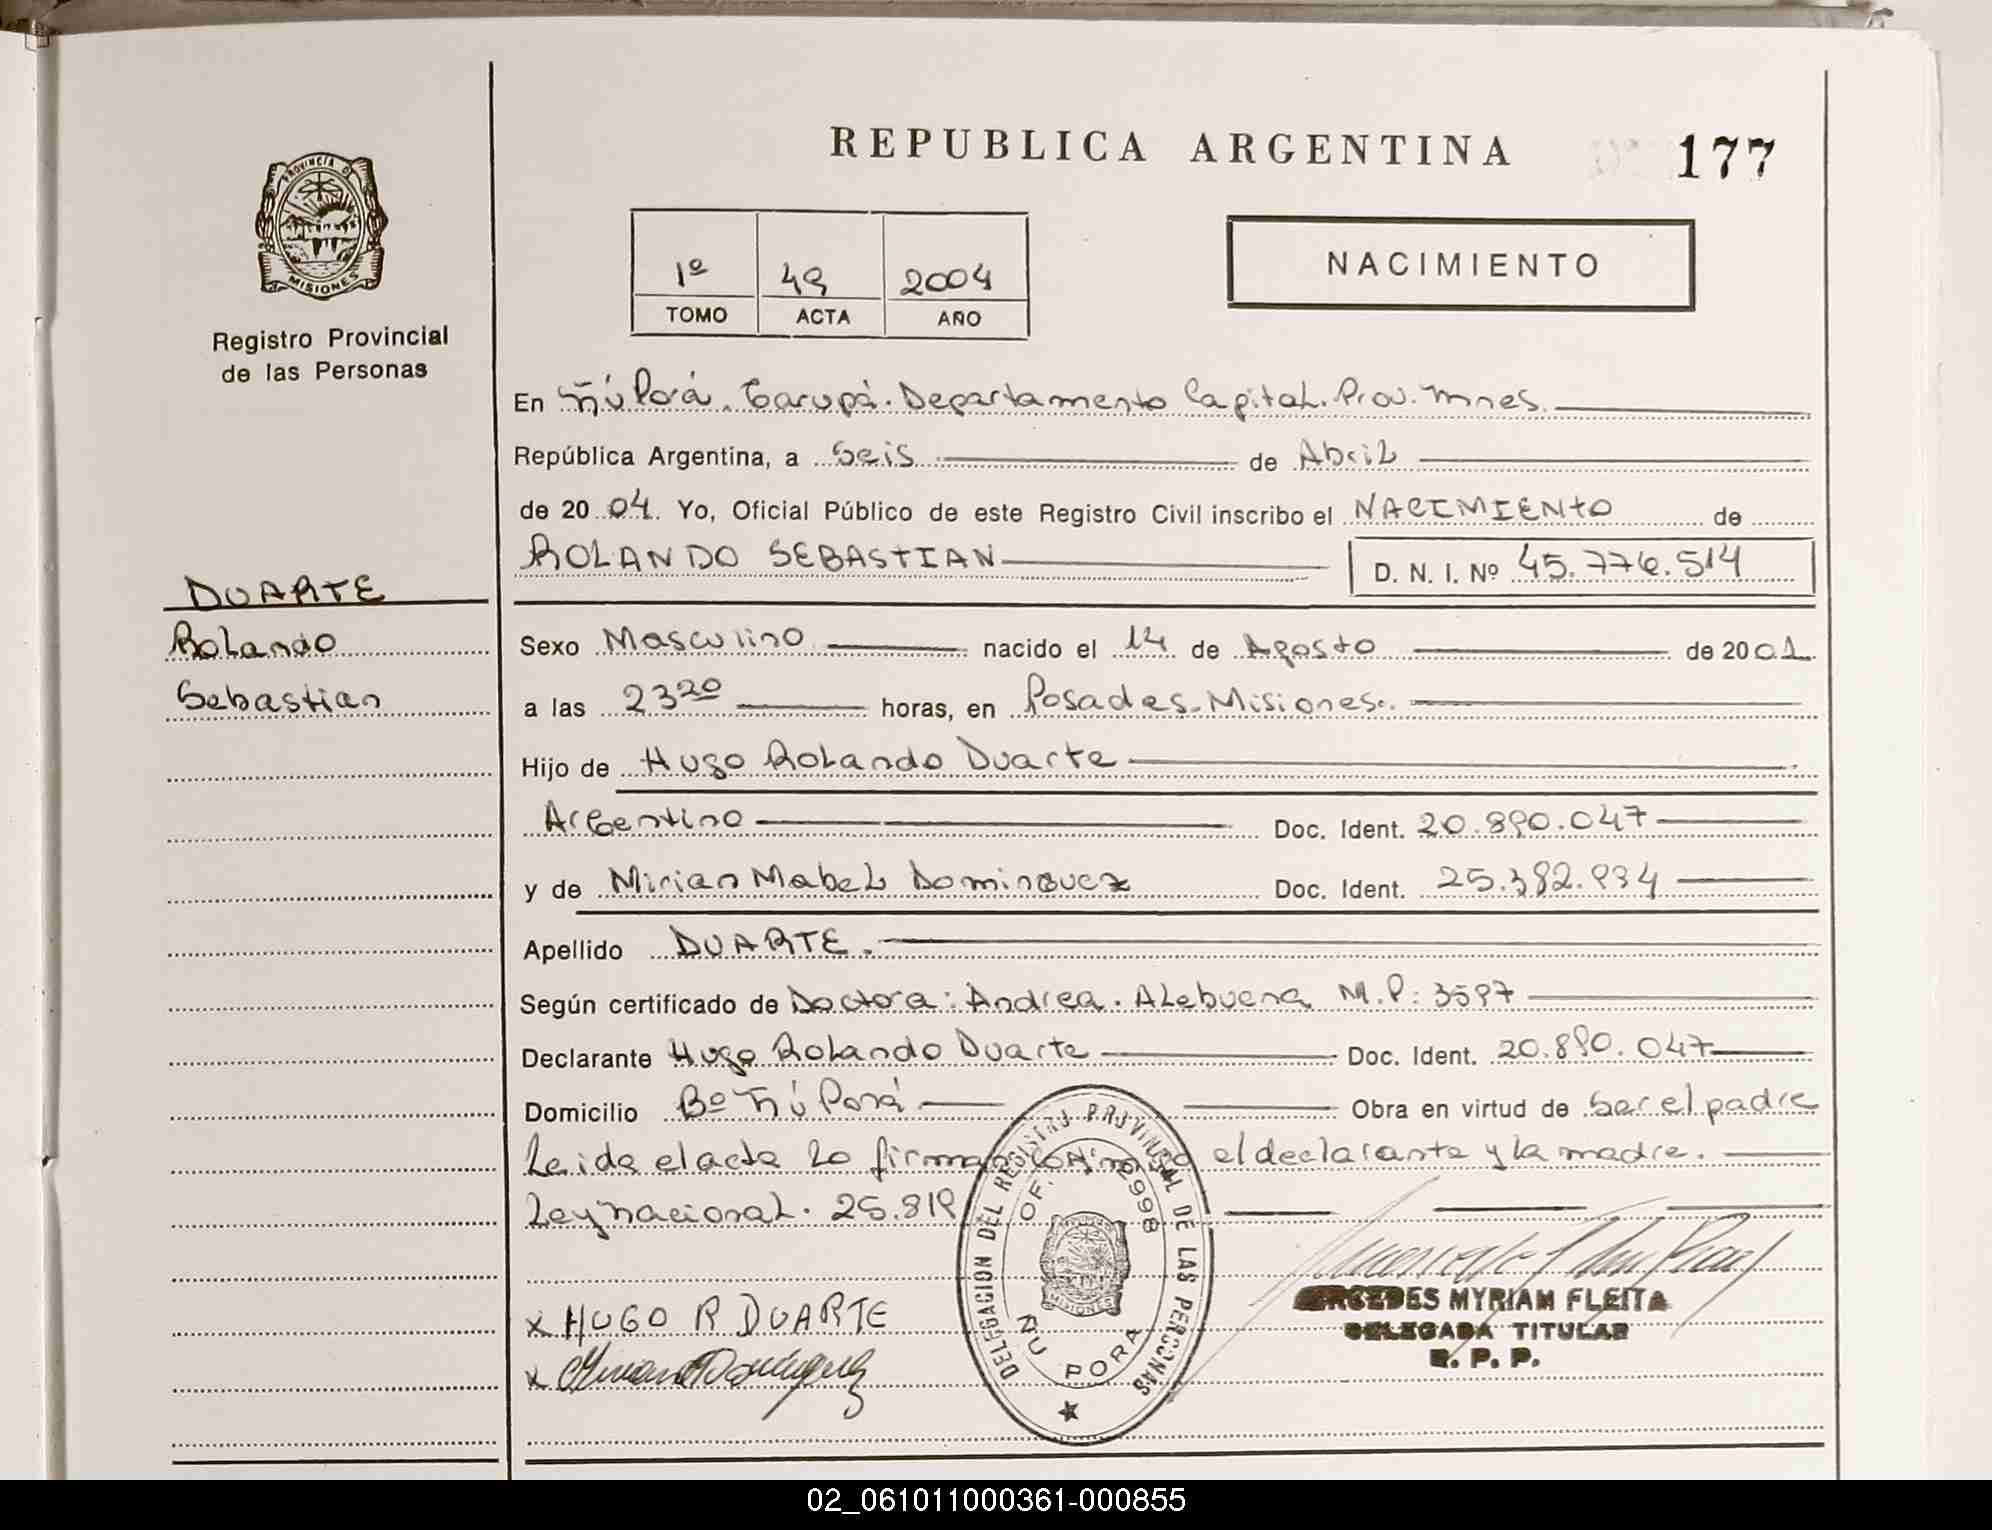 REPUBLICA ARGENTINA
177
PROVINCIA DE
MISIONES
Registro Provincial
de las Personas
1º 49 2004
TOMO ACTA AÑO
NACIMIENTO
En Ñú Porá. Garupá. Departamento Capital. Prov. Mnes.
República Argentina, a seis de Abril
de 2004. Yo, Oficial Público de este Registro Civil inscribo el NACIMIENTO de
ROLANDO SEBASTIAN D. N. I. Nº 45.776.514
DUARTE
Rolando
Sebastian
Sexo Masculino nacido el 14 de Agosto de 2001
a las 23 20 horas, en Posadas-Misiones.
Hijo de Hugo Rolando Duarte
Argentino Doc. Ident. 20.890.047
y de Mirian Mabel Dominguez Doc. Ident. 25.382.934
Apellido DUARTE.
Según certificado de Doctora: Andrea. Alebuena M.P: 3597
Declarante Hugo Rolando Duarte Doc. Ident. 20.890.047
Domicilio Bº Ñú Porá Obra en virtud de ser el padre
Leida el acta lo firman conmigo el declarante y la madre.
Ley Nacional. 25.819
DELEGACION DEL REGISTRO PROVINCIAL DE LAS PERSONAS
OF. 2998
MISIONES
ÑU PORA
x HUGO R DUARTE
x Miriam Dominguez
MERCEDES MYRIAM FLEITA
DELEGADA TITULAR
R. P. P.
02_061011000361-000855